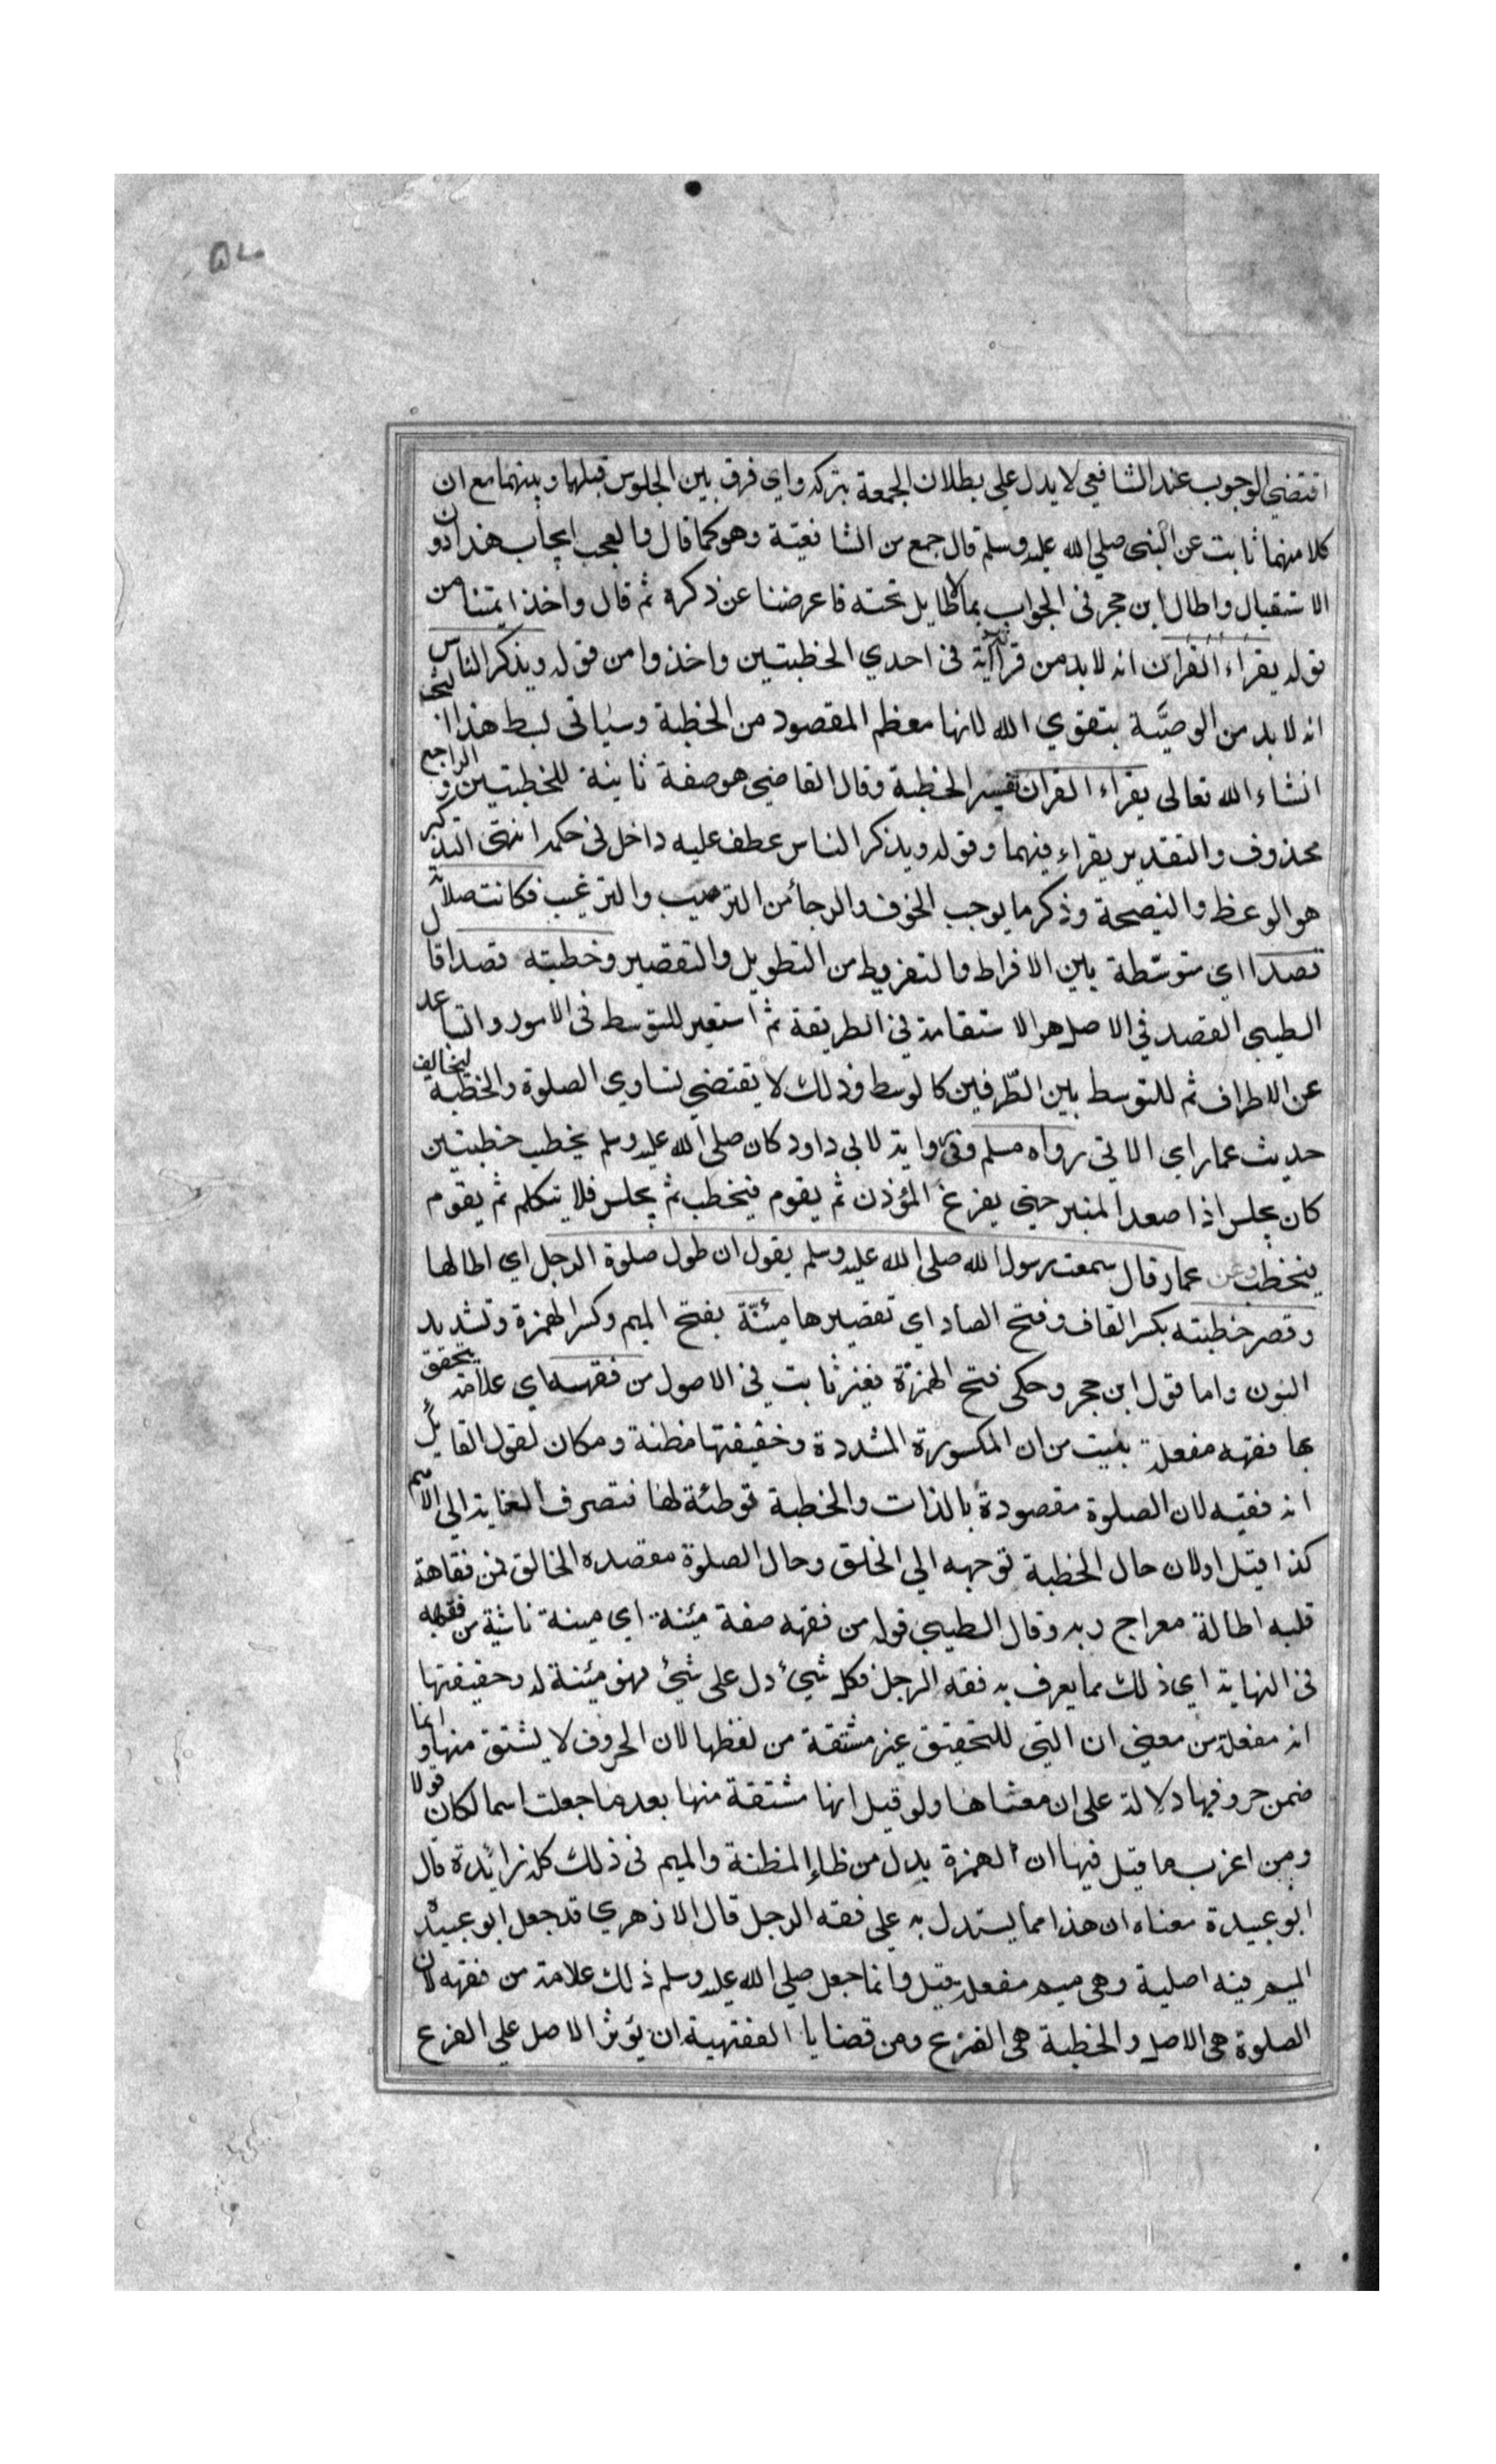 اقتضي الوجوب عند الشافعي لا يدل علي بطلان الجمعة بتركه واي فرق بين الجلوس قبلها وبينهما مع ان
كلا منهما ثابت عن النبي صلي الله عليه وسلم قال جمع من الشافعية وهو كما قال والعجب ايجاب هذا دون
الاستقبال واطال ابن حجر في الجواب بما لا طايل تحته فاعرضنا عن ذكره ثم قال واخذ ايمتنا من
قوله يقراء القران انه لابد من قراءة آية في احدي الخطبتين واخذوا من قوله ويذكر الناس
انه لا بد من الوصيّة بتقوي الله لانها معظم المقصود من الخطبة وسياتي لبسط هذا
انشاء الله تعالى يقراء القران تفسير الخطبة وقال القاضي هو صفة ثانية للخطبتين والراجع
محذوف والتقدير يقراء فيهما وقوله ويذكر الناس عطف عليه داخل في حكمه انتهى التذكير
هو الوعظ والنصيحة وذكر ما يوجب الخوف والرجأ من الترهيب والترغيب فكانت صلاته
قصدا اي متوسّطة بين الافراط والتفريط من التطويل والتقصير وخطبته قصدا قال
الطيبي القصد في الاصل هو الاستقامة في الطريقة ثم استعير للتوسط في الامور والتباعد
عن الاطراف ثم للتوسط بين الطّرفين كالوسط وذلك لا يقتضي تساوي الصلوة والخطبة ليخالف
حديث عمار اي الاتي رواه مسلم وفي رواية لابي داود كان صلى الله عليه وسلم يخطب خطبتين
كان يجلس اذا صعد المنبر حتي يفرغ المؤذن ثم يقوم فيخطب ثم يجلس فلا يتكلم ثم يقوم
فيخطب وعن عمار قال سمعت رسول الله صلى الله عليه وسلم يقول ان طول صلوة الرجل اي اطالها
وقصر خطبته بكسر القاف وفتح الصاد اي تقصيرها مئنّة بفتح الميم وكسر الهمزة وتشديد
النون واما قول ابن حجر وحكى فتح الهمزة فغير ثابت في الاصول من فقهه اي علامة يتحقق
بها فقهه مفعلة بنيت من ان المكسورة المشددة وحقيقتها مظنة ومكان لقول القايل
انه فقيه لان الصلوة مقصودة بالذات والخطبة توطئة لها فتصرف العناية الي الاهم
كذا قيل اولان حال الخطبة توجهه الي الخلق وحال الصلوة مقصده الخالق فمن فقاهة
قلبه اطالة معراج ربه وقال الطيبي قوله من فقهه صفة مئنة اي مينة ناشية من فقهه
في النهاية اي ذلك مما يعرف به فقه الرجل فكل شيء دل على شيء فهو مئينة له وحقيقتها
انه مفعلة من معنى ان التي للتحقيق غير مشتقة من لفظها لان الحروف لا يشتق منها وانما
ضمن حروفها دلالة على ان معناها ولو قيل انها مشتقة منها بعد ما جعلت اسما لكان قولا
ومن اغرب ما قيل فيها ان الهمزة بدل من ظاء المظنة والميم في ذلك كله زائدة قال
ابو عبيدة معناه ان هذا مما يستدل به علي فقه الرجل قال الازهري قد جعل ابو عبيدة
الميم فيه اصلية وهي ميم مفعلة قيل وانما جعل صلى الله عليه وسلم ذلك علامة من فقهه لان
الصلوة هي الاصل والخطبة هي الفرع ومن قضايا الفقهية ان يؤثر الاصل علي الفرع